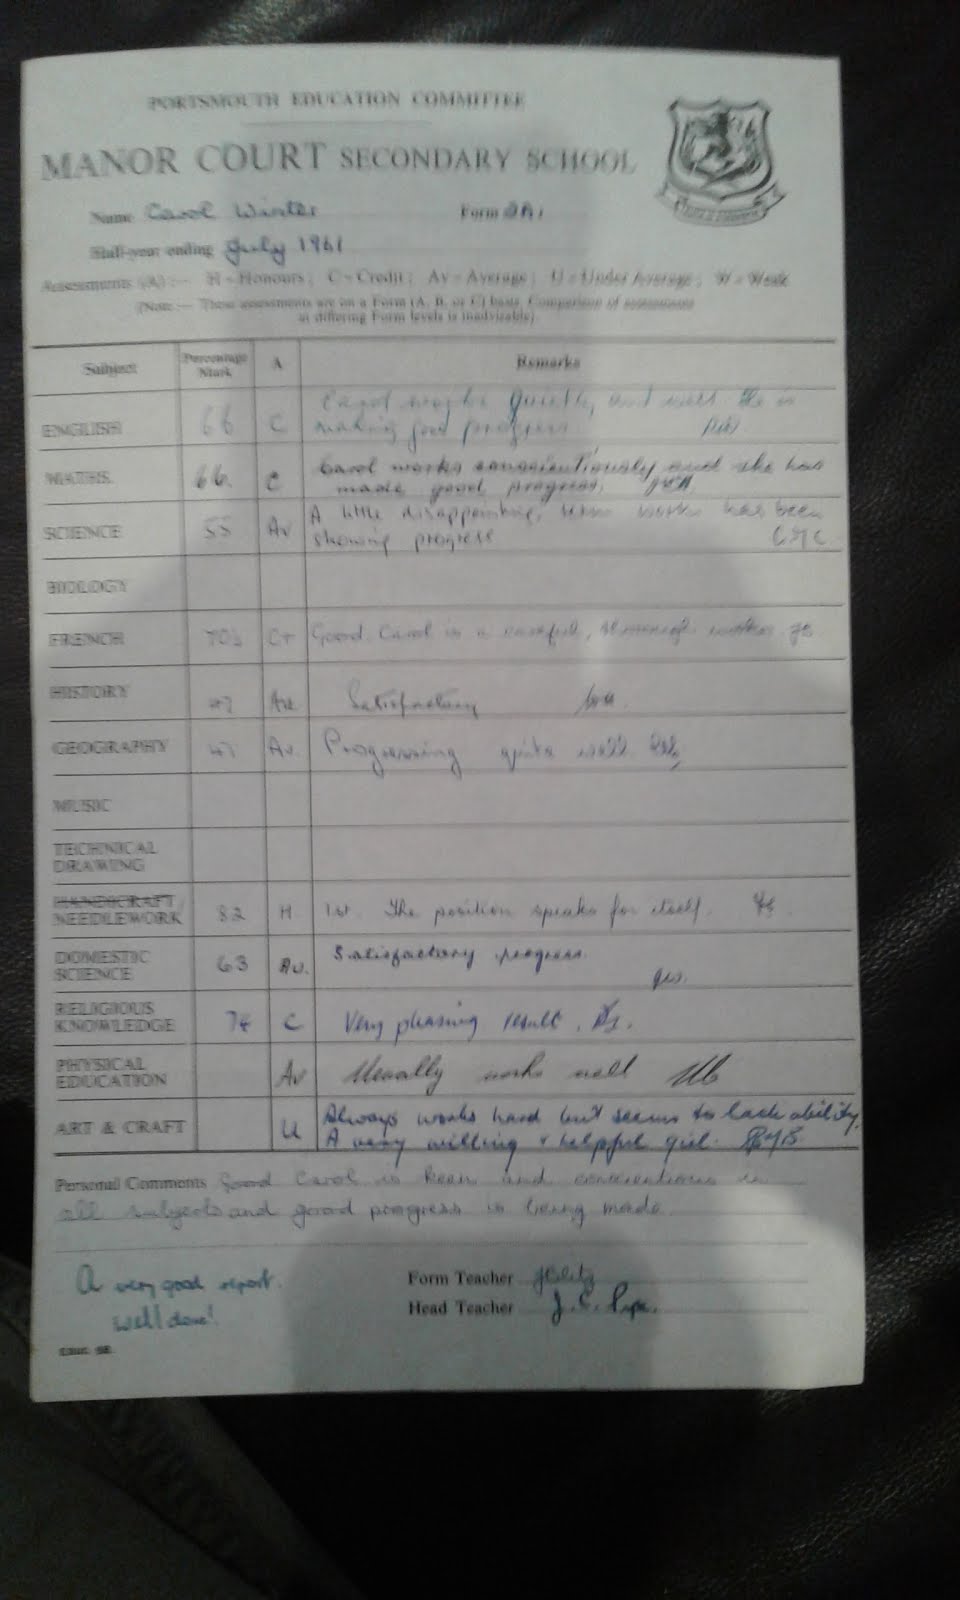 PORTSMOUTH EDUCATION COMMITTEE
MANOR COURT SECONDARY SCHOOL
Name Carol Winter Form 2A1
Half-year ending July 1961
Assessments (A) :— H—Honours; C—Credit; Av—Average; U—Under Average; W—Weak
(Note:— These assessments are on a Form (A, B, or C) basis. Comparison of assessments
at differing Form levels is inadvisable).
Subject Percentage Mark A Remarks
ENGLISH 66 C Carol works quietly and well. She is
making good progress.
MATHS. 66. C Carol works conscientiously and she has
made good progress.
SCIENCE 55 Av A little disappointing, term works has been
showing progress CMC
BIOLOGY
FRENCH 70½ C+ Good. Carol is a careful, thorough worker.
HISTORY 47 Av Satisfactory
GEOGRAPHY 47 Av. Progressing quite well.
MUSIC
TECHNICAL
DRAWING
HANDICRAFT
NEEDLEWORK 82 H 1st. The position speaks for itself.
DOMESTIC
SCIENCE 63 Av. Satisfactory progress.
RELIGIOUS
KNOWLEDGE 74 C Very pleasing result.
PHYSICAL
EDUCATION Av Usually works well
ART & CRAFT U Always works hard but seems to lack ability.
A very willing & helpful girl.
Personal Comments Good Carol is keen and conscientious in
all subjects and good progress is being made.
A very good report.
Well done!
Form Teacher
Head Teacher J. C.
Educ. 98.